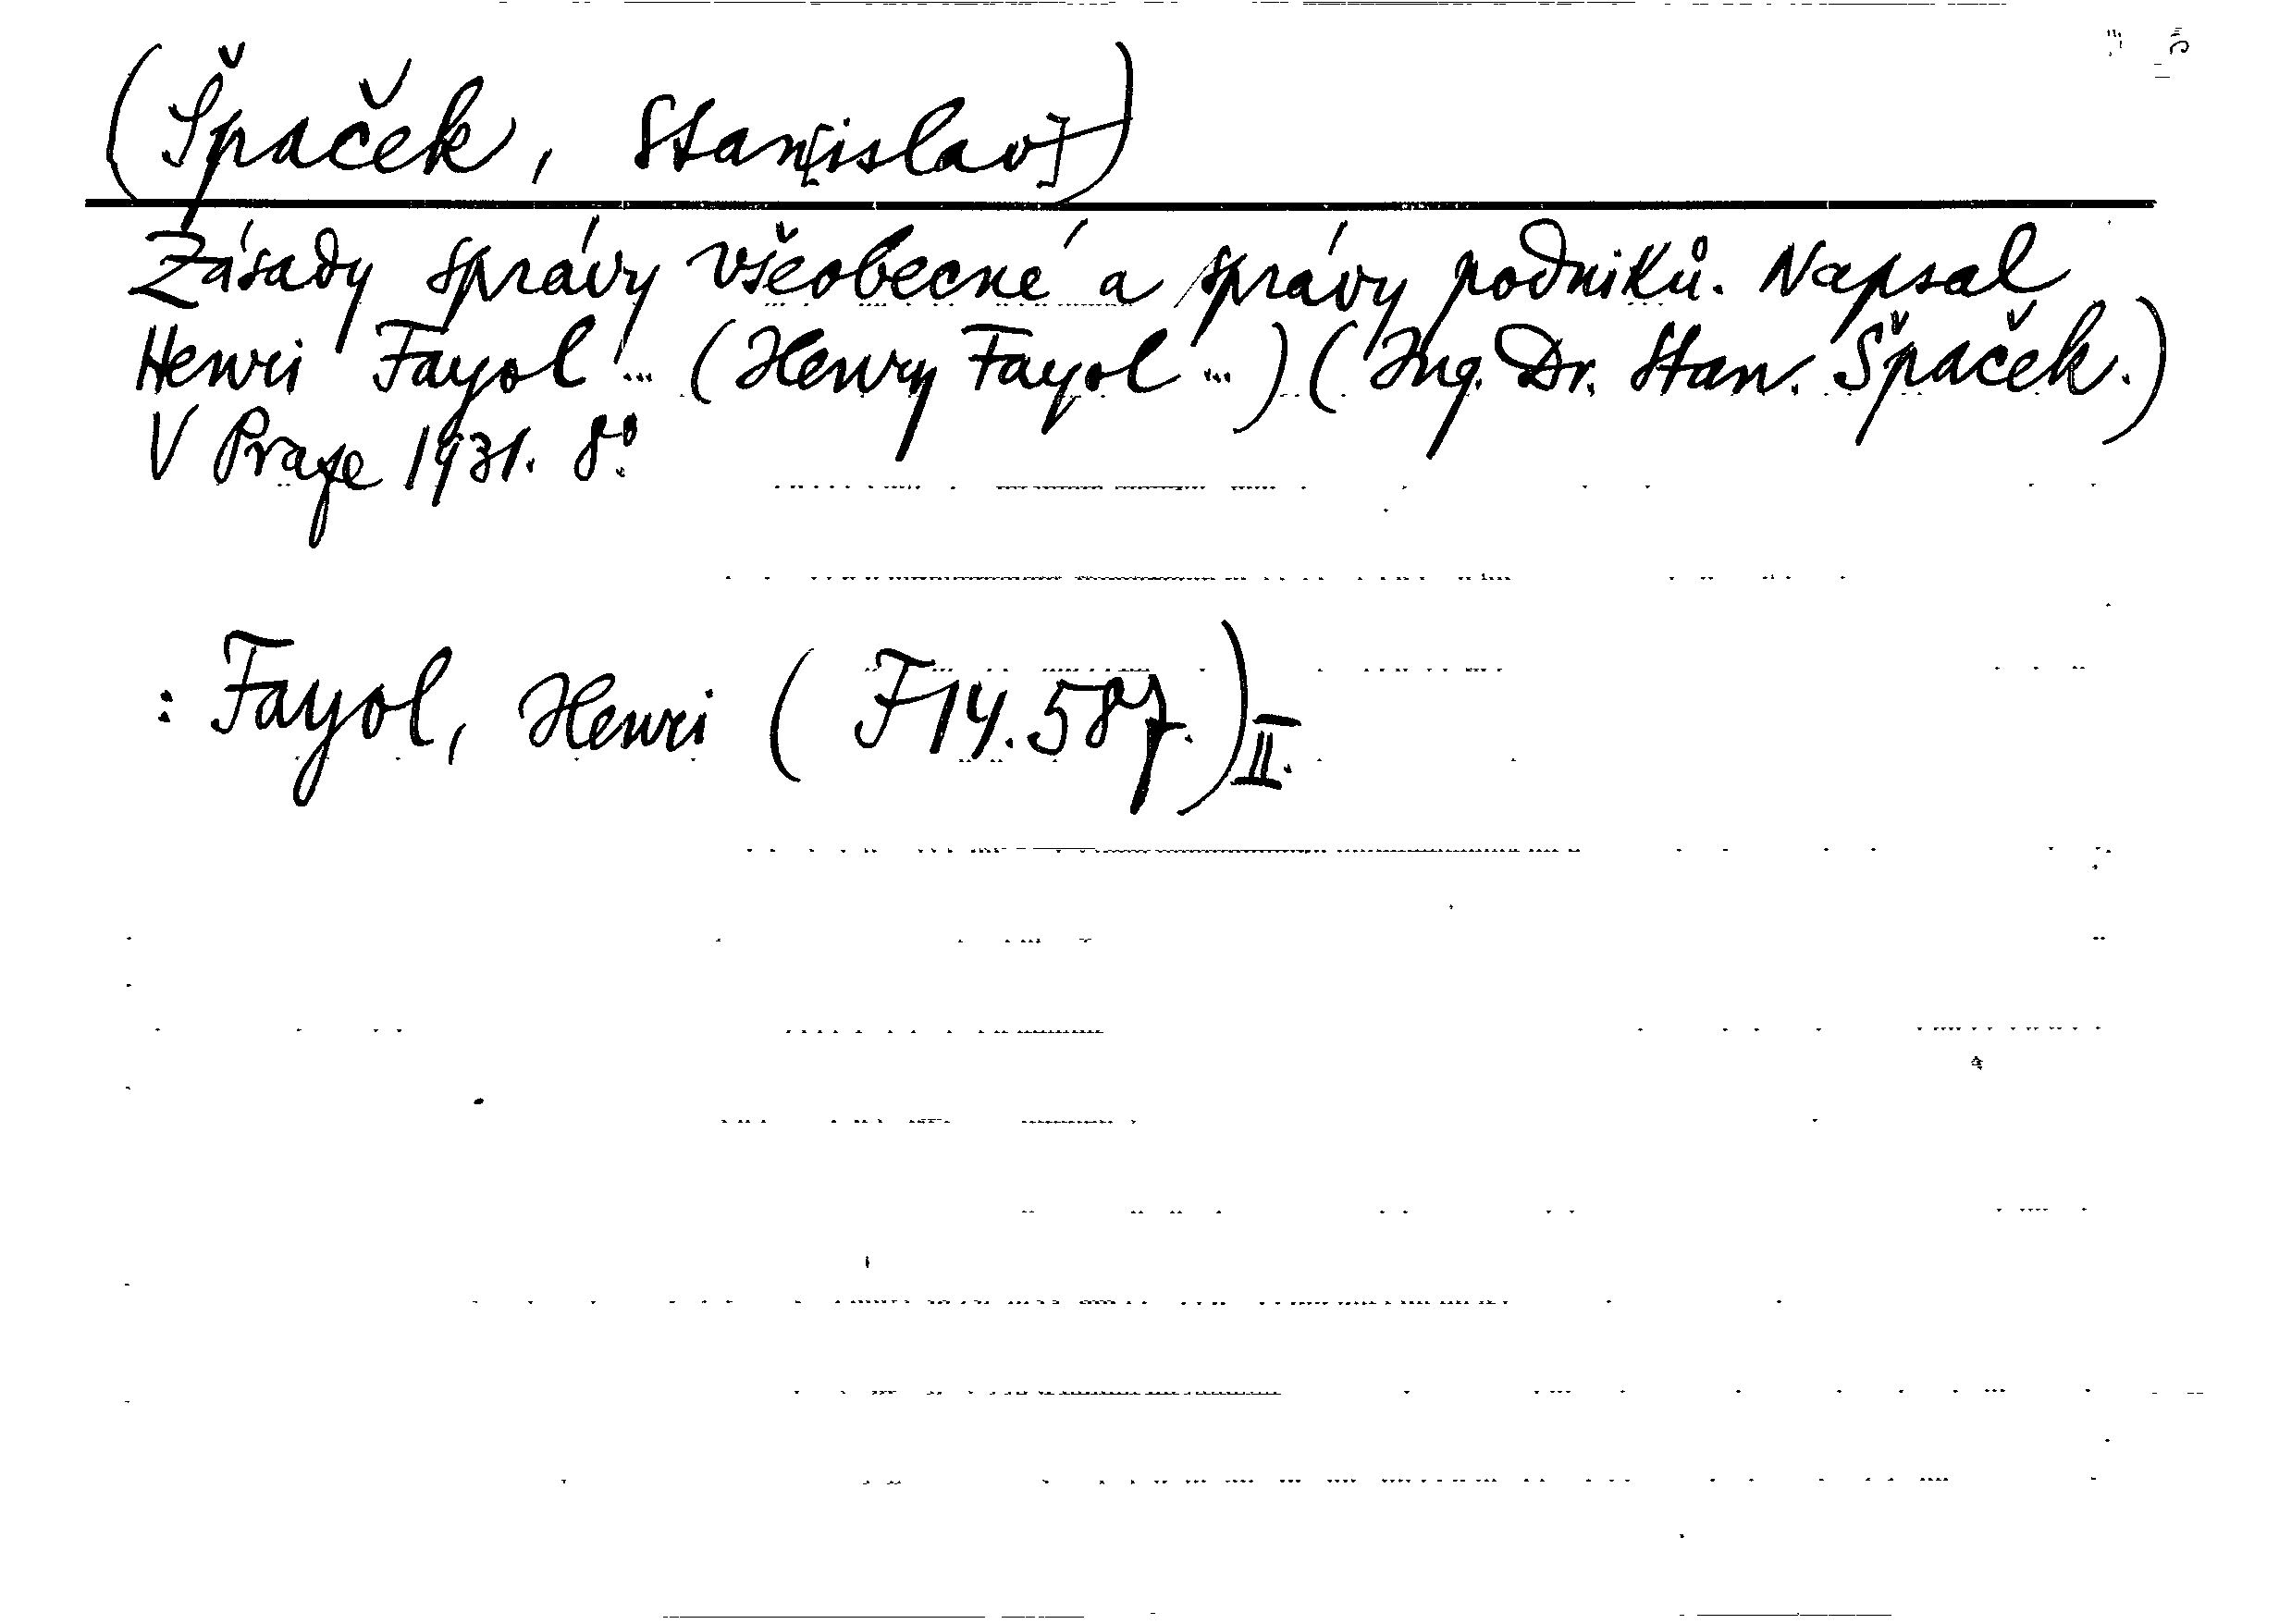 (Špaček, Stan[islav])
Zásady správy všeobecné a správy podniků. Napsal
Henri Fayol ... (Henry Fayol ...) (Ing. Dr. Stan. Špaček.)
V Praze 1931. 8°.
: Fayol, Henri (F 14.587.) II.